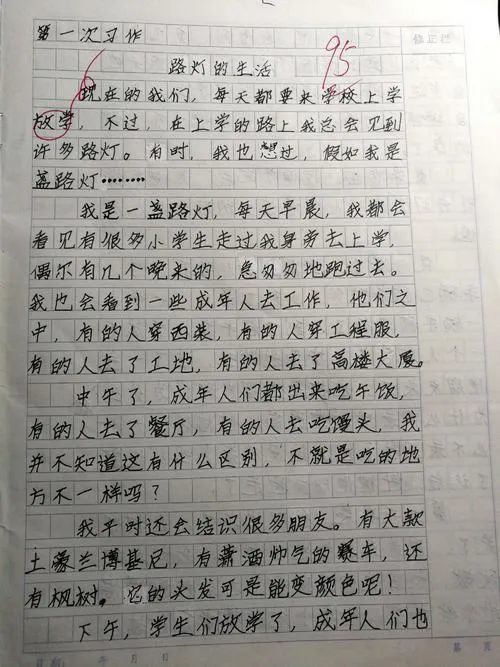 第一次习作
路灯的生活
95
修正栏
现在的我们，每天都要来学校上学
放学，不过，在上学的路上我总会见到
许多路灯。有时，我也想过，假如我是
盏路灯……
我是一盏路灯，每天早晨，我都会
看见有很多小学生走过我身旁去上学，
偶尔有几个晚来的，急匆匆地跑过去。
我也会看到一些成年人去工作，他们之
中，有的人穿西装，有的人穿工程服，
有的人去了工地，有的人去了高楼大厦。
中午了，成年人们都出来吃午饭，
有的人去了餐厅，有的人去吃馒头，我
并不知道这有什么区别，不就是吃的地
方不一样吗？
我平时还会结识很多朋友。有大款
土豪兰博基尼，有萧洒帅气的赛车，还
有枫树。它的头发可是能变颜色呢！
下午，学生们放学了，成年人们也
年 月 日
第 页